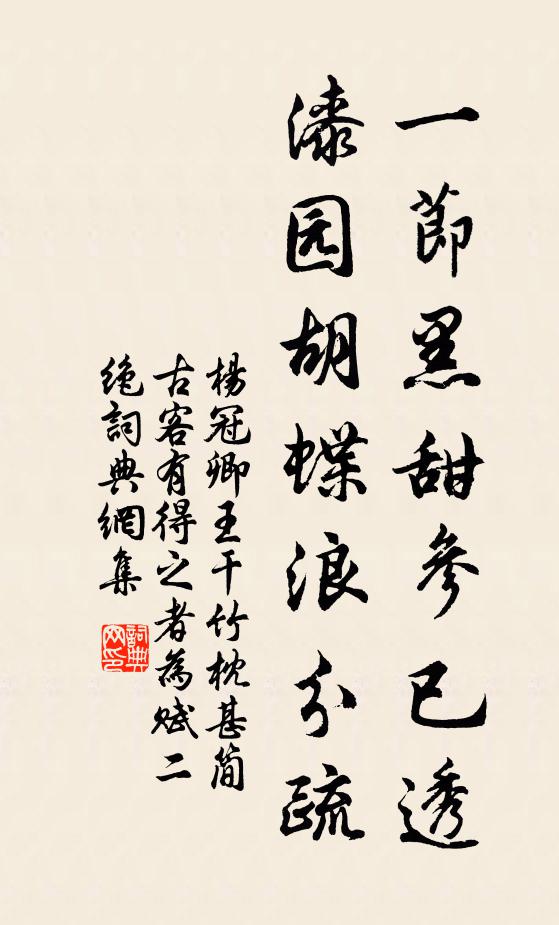 一節黑甜參已透
漆园胡蝶浪分疏
楊冠卿王干竹枕甚简
古客有得之者為赋二
绝詞典網集
詞典
网印